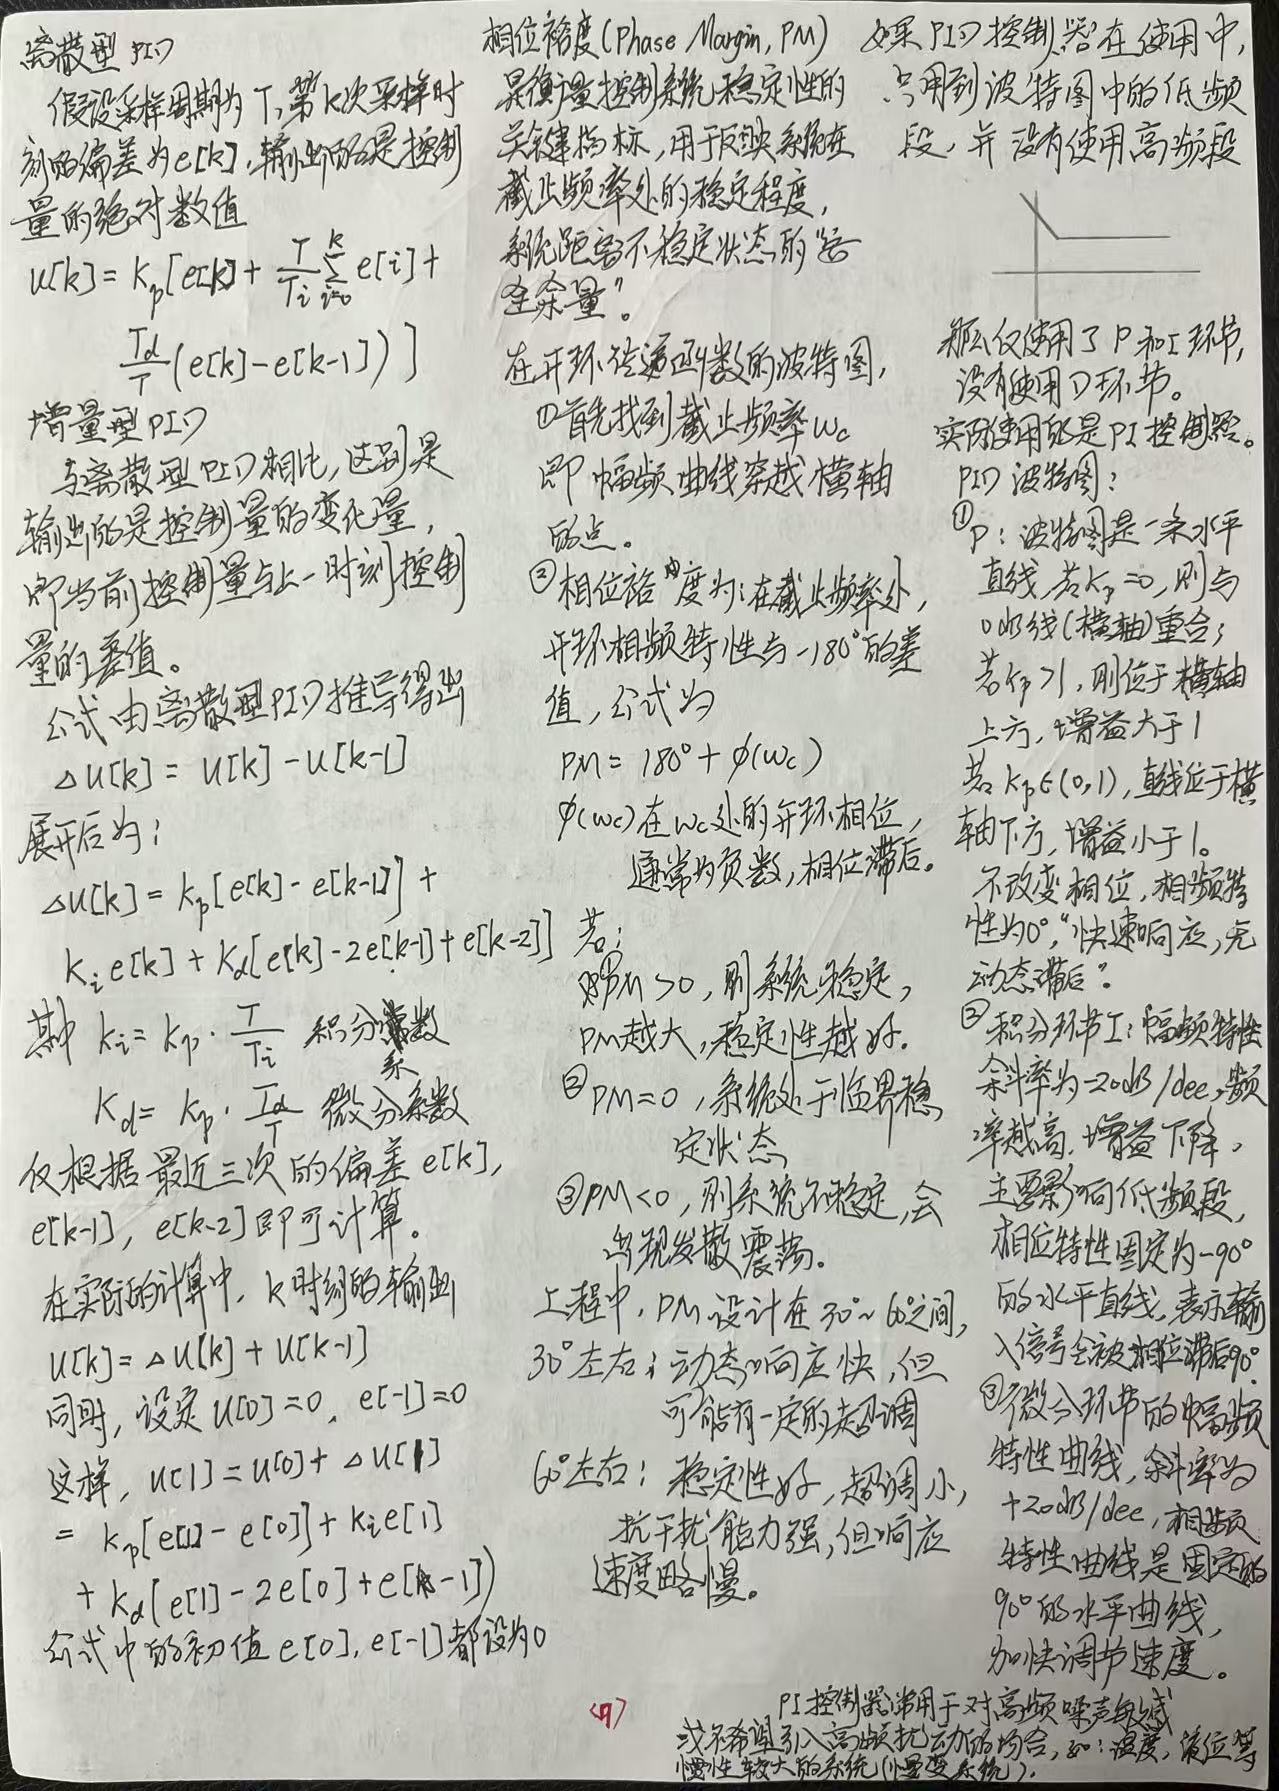 离散型 PID
假设采样周期为T,第k次采样时
刻的偏差为e[k],输出的是控制
量的绝对数值
u[k] = Kp[e[k] + T/Ti Σ(i=0→k) e[i] +
Td/T (e[k]-e[k-1])]
增量型PID
与离散型PID相比,区别是
输出的是控制量的变化量,
即当前控制量与上一时刻控制
量的差值。
公式由离散型PID推导得出
△u[k] = u[k] - u[k-1]
展开后为:
△u[k] = Kp[e[k] - e[k-1]] +
Ki e[k] + Kd[e[k]-2e[k-1]+e[k-2]]
其中 Ki = Kp · T/Ti 积分系数
Kd = Kp · Td/T 微分系数
仅根据最近三次的偏差 e[k],
e[k-1], e[k-2]即可计算。
在实际的计算中, k时刻的输出
u[k] = △u[k] + u[k-1]
同时, 设定 u[0]=0, e[-1]=0
这样, u[1] = u[0] + △u[1]
= Kp[e[1] - e[0]] + Ki e[1]
+ Kd(e[1] - 2e[0] + e[-1])
公式中的初值 e[0], e[-1]都设为0
相位裕度(Phase Margin, PM)
是衡量控制系统稳定性的
关键指标,用于反映系统在
截止频率处的稳定程度,
系统距离不稳定状态的"安
全余量"。
在开环传递函数的波特图,
①首先找到截止频率ωc
即幅频曲线穿越横轴
的点。
②相位裕度为:在截止频率处,
开环相频特性与-180°的差
值,公式为
PM = 180° + φ(ωc)
φ(ωc)在ωc处的开环相位,
通常为负数,相位滞后。
若:
①PM>0,则系统稳定,
PM越大,稳定性越好.
②PM=0,系统处于临界稳
定状态
③PM<0,则系统不稳定,会
出现发散震荡.
工程中,PM设计在30°~60°之间,
30°左右:动态响应快,但
可能有一定的超调
60°左右: 稳定性好,超调小,
抗干扰能力强,但响应
速度略慢。
如果PID控制器在使用中,
只用到波特图中的低频
段,并没有使用高频段
那么仅使用了P和I环节,
没有使用D环节。
实际使用的是PI控制器。
PID波特图:
①P:波特图是一条水平
直线,若Kp=0,则与
0dB线(横轴)重合;
若Kp>1,则位于横轴
上方,增益大于1
若Kp∈(0,1),直线位于横
轴下方,增益小于1。
不改变相位,相频特
性为0°,"快速响应,无
动态滞后"
②积分环节I:幅频特性
斜率为-20dB/dec,频
率越高.增益下降,
主要影响低频段,
相位特性固定为-90°
的水平直线,表示输
入信号会被相位滞后90°
③微分环节的幅频
特性曲线,斜率为
+20dB/dec,相频
特性曲线是固定的
90°的水平曲线,
加快调节速度。
PI控制器常用于对高频噪声敏感
或不希望引入高频扰动的场合,如:温度,液位等
惯性较大的系统(慢变系统).